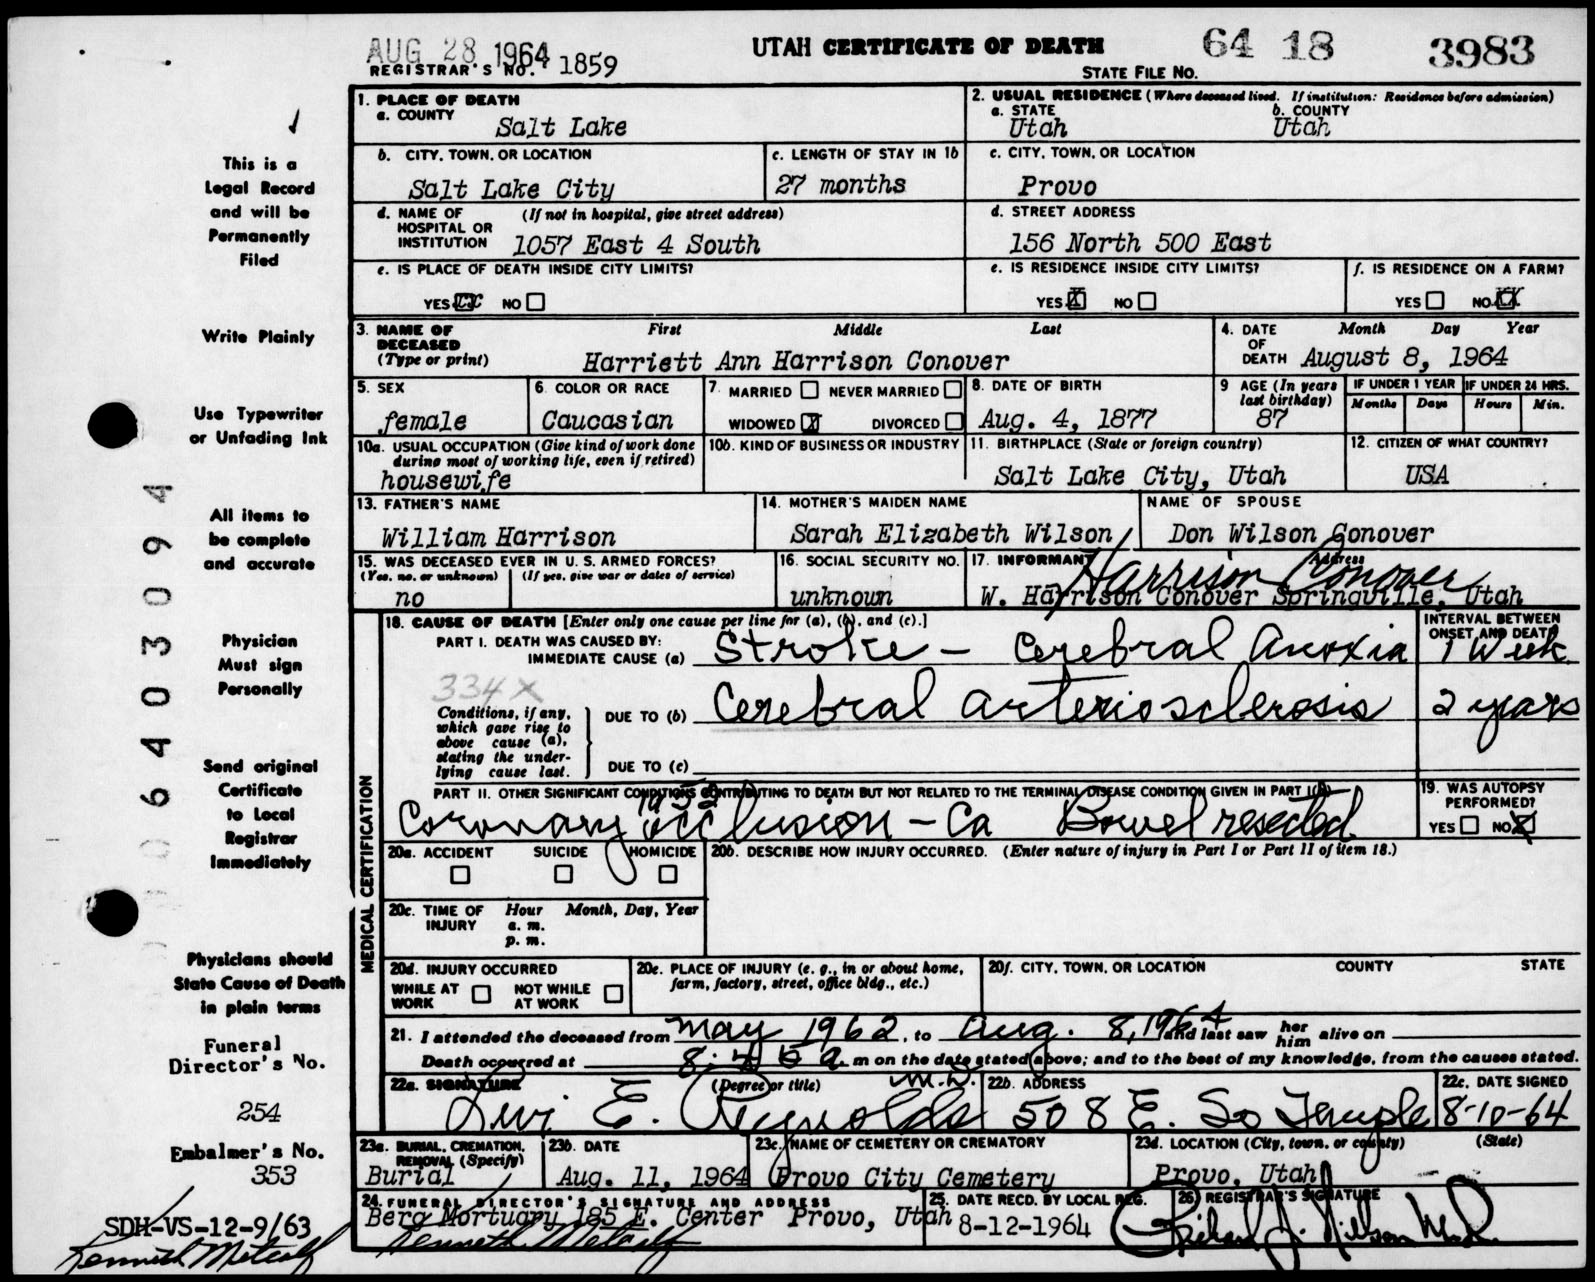 AUG 28 1964
REGISTRAR'S NO. 1859
UTAH CERTIFICATE OF DEATH
64 18 3983
STATE FILE NO.
1. PLACE OF DEATH
a. COUNTY
Salt Lake
2. USUAL RESIDENCE (Where deceased lived. If institution: Residence before admission)
a. STATE b. COUNTY
Utah Utah
b. CITY, TOWN, OR LOCATION
Salt Lake City
c. LENGTH OF STAY IN 1b
27 months
c. CITY, TOWN, OR LOCATION
Provo
d. NAME OF HOSPITAL OR INSTITUTION (If not in hospital, give street address)
1057 East 4 South
d. STREET ADDRESS
156 North 500 East
e. IS PLACE OF DEATH INSIDE CITY LIMITS?
YES xx NO
e. IS RESIDENCE INSIDE CITY LIMITS?
YES X NO
f. IS RESIDENCE ON A FARM?
YES NO XX
3. NAME OF DECEASED (Type or print)
First Middle Last
Harriett Ann Harrison Conover
4. DATE OF DEATH
Month Day Year
August 8, 1964
5. SEX
female
6. COLOR OR RACE
Caucasian
7. MARRIED NEVER MARRIED
WIDOWED X DIVORCED
8. DATE OF BIRTH
Aug. 4, 1877
9 AGE (In years last birthday)
87
IF UNDER 1 YEAR IF UNDER 24 HRS.
Months Days Hours Min.
10a. USUAL OCCUPATION (Give kind of work done during most of working life, even if retired)
housewife
10b. KIND OF BUSINESS OR INDUSTRY
11. BIRTHPLACE (State or foreign country)
Salt Lake City, Utah
12. CITIZEN OF WHAT COUNTRY?
USA
13. FATHER'S NAME
William Harrison
14. MOTHER'S MAIDEN NAME
Sarah Elizabeth Wilson
NAME OF SPOUSE
Don Wilson Conover
15. WAS DECEASED EVER IN U. S. ARMED FORCES?
(Yes, no, or unknown) (If yes, give war or dates of service)
no
16. SOCIAL SECURITY NO.
unknown
17. INFORMANT Address
Harrison Conover
W. Harrison Conover Springville, Utah
MEDICAL CERTIFICATION
18. CAUSE OF DEATH [Enter only one cause per line for (a), (b), and (c).]
INTERVAL BETWEEN ONSET AND DEATH
PART I. DEATH WAS CAUSED BY:
IMMEDIATE CAUSE (a) Stroke - Cerebral Anoxia 1 Week
334X
Conditions, if any, which gave rise to above cause (a), stating the underlying cause last.
DUE TO (b) Cerebral arteriosclerosis 2 years
DUE TO (c)
PART II. OTHER SIGNIFICANT CONDITIONS CONTRIBUTING TO DEATH BUT NOT RELATED TO THE TERMINAL DISEASE CONDITION GIVEN IN PART I(a)
1952
Coronary occlusion - Ca Bowel resected
19. WAS AUTOPSY PERFORMED?
YES NO X
20a. ACCIDENT SUICIDE HOMICIDE
20b. DESCRIBE HOW INJURY OCCURRED. (Enter nature of injury in Part I or Part II of item 18.)
20c. TIME OF INJURY Hour Month, Day, Year
a. m.
p. m.
20d. INJURY OCCURRED
WHILE AT WORK NOT WHILE AT WORK
20e. PLACE OF INJURY (e. g., in or about home, farm, factory, street, office bldg., etc.)
20f. CITY, TOWN, OR LOCATION COUNTY STATE
21. I attended the deceased from May 1962, to Aug. 8, 1964 and last saw her him alive on
Death occurred at a. m on the date stated above; and to the best of my knowledge, from the causes stated.
22a. SIGNATURE (Degree or title) M.D.
Levi E. Reynolds
22b. ADDRESS
508 E. So Temple
22c. DATE SIGNED
8-10-64
23a. BURIAL, CREMATION, REMOVAL (Specify)
Burial
23b. DATE
Aug. 11, 1964
23c. NAME OF CEMETERY OR CREMATORY
Provo City Cemetery
23d. LOCATION (City, town, or county) (State)
Provo, Utah
24. FUNERAL DIRECTOR'S SIGNATURE AND ADDRESS
Berg Mortuary 185 E. Center Provo, Utah
Kenneth Metcalf
25. DATE RECD. BY LOCAL REG.
8-12-1964
26. REGISTRAR'S SIGNATURE
This is a
Legal Record
and will be
Permanently
Filed
Write Plainly
Use Typewriter
or Unfading Ink
All items to
be complete
and accurate
Physician
Must sign
Personally
Send original
Certificate
to Local
Registrar
Immediately
Physicians should
State Cause of Death
in plain terms
Funeral
Director's No.
254
Embalmer's No.
353
SDH-VS-12-9/63
Kenneth Metcalf